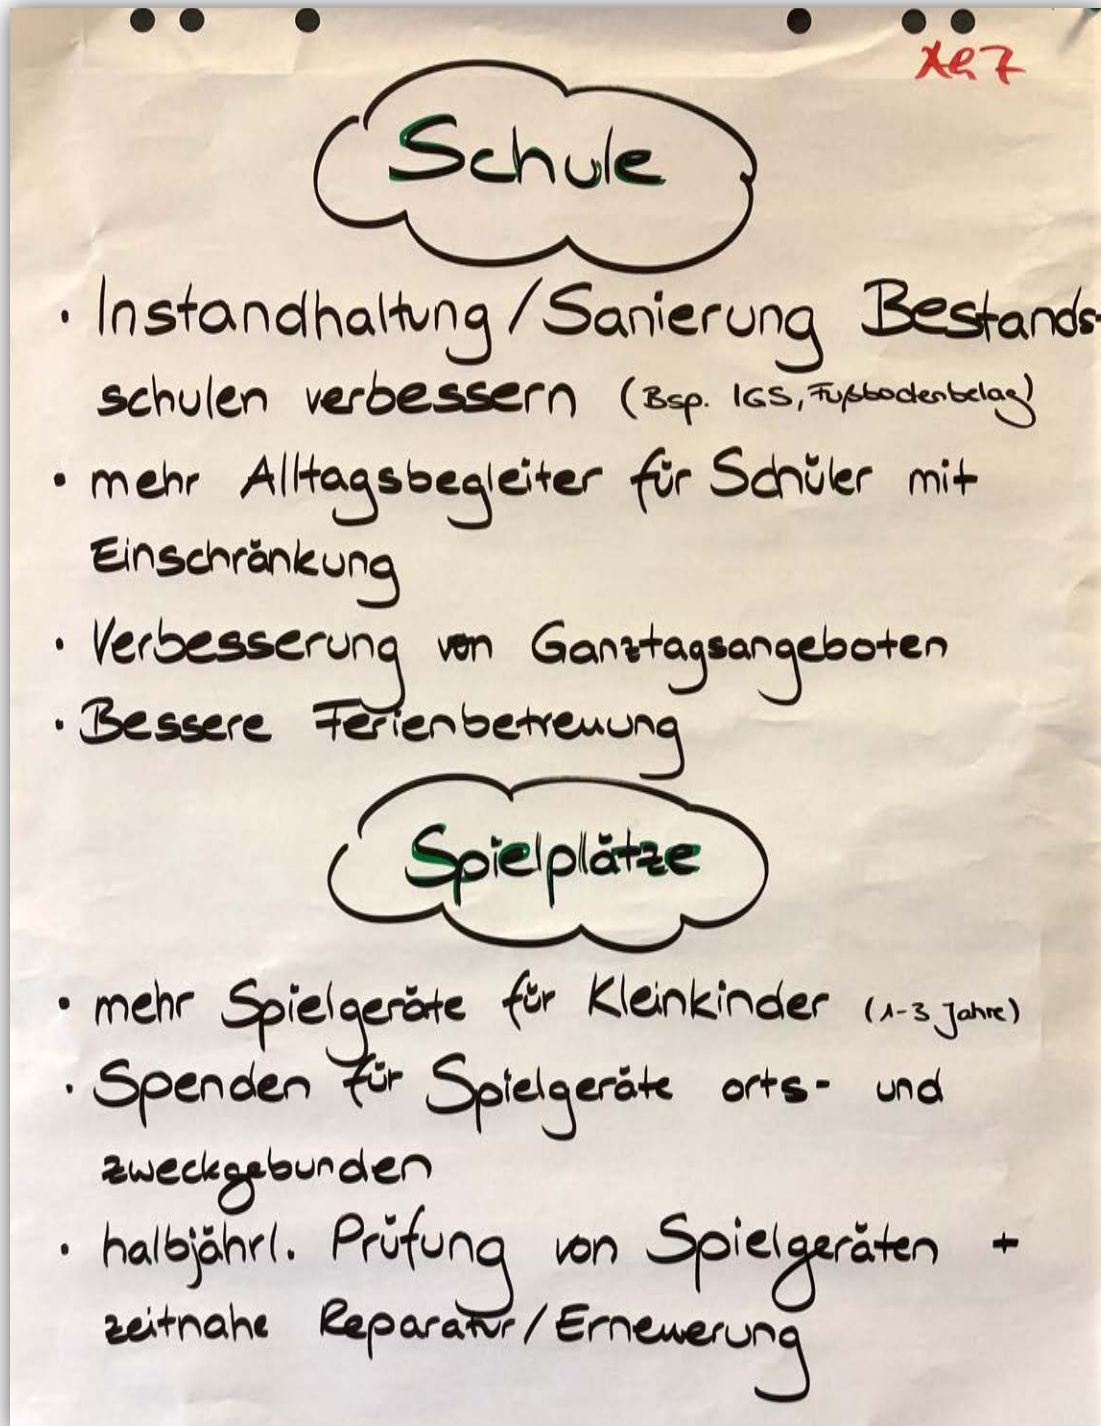 Schule
· Instandhaltung/Sanierung Bestands-
schulen verbessern (Bsp. IGS, Fußbodenbelag)
· mehr Alltagsbegleiter für Schüler mit
Einschränkung
· Verbesserung von Ganztagsangeboten
· Bessere Ferienbetreuung
Spielplätze
· mehr Spielgeräte für Kleinkinder (1-3 Jahre)
· Spenden für Spielgeräte orts- und
zweckgebunden
· halbjährl. Prüfung von Spielgeräten +
zeitnahe Reparatur/Erneuerung